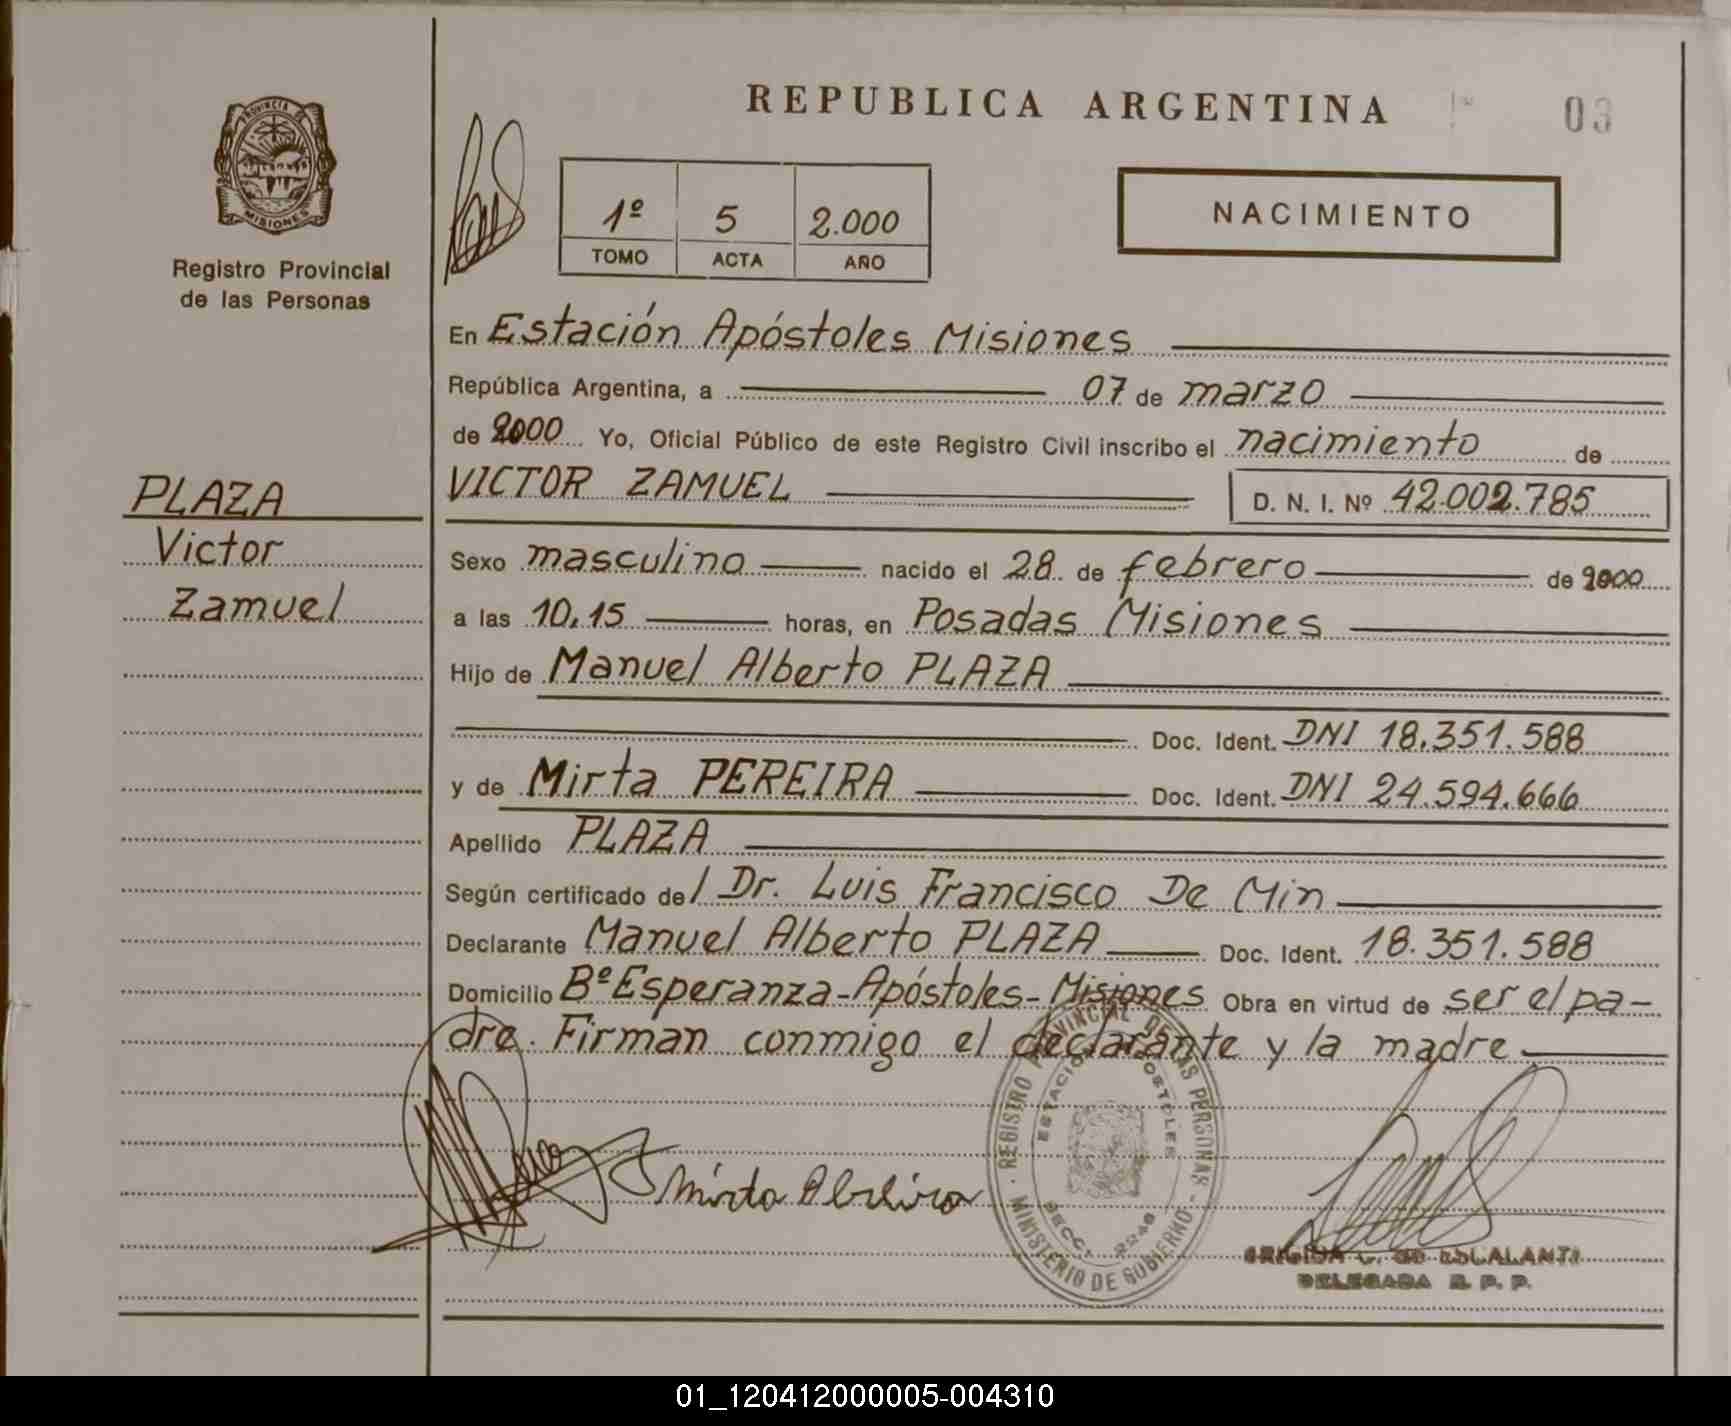 REPUBLICA ARGENTINA
03
PROVINCIA DE
MISIONES
Registro Provincial
de las Personas
1º 5 2.000
TOMO ACTA AÑO
NACIMIENTO
En Estación Apóstoles Misiones
República Argentina, a 07 de marzo
de 2000 Yo, Oficial Público de este Registro Civil inscribo el nacimiento de
VICTOR ZAMUEL D. N. I. Nº 42.002.785
PLAZA
Victor
Zamuel
Sexo masculino nacido el 28 de febrero de 2000
a las 10,15 horas, en Posadas Misiones
Hijo de Manuel Alberto PLAZA
Doc. Ident. DNI 18.351.588
y de Mirta PEREIRA Doc. Ident. DNI 24.594.666
Apellido PLAZA
Según certificado del Dr. Luis Francisco De Min
Declarante Manuel Alberto PLAZA Doc. Ident. 18.351.588
Domicilio Bº Esperanza-Apóstoles-Misiones Obra en virtud de ser el pa-
dre. Firman conmigo el declarante y la madre
REGISTRO PROVINCIAL DE LAS PERSONAS - MINISTERIO DE GOBIERNO
ESTACION APOSTOLES
SECC.
Mirta
C. DE ESCALANTE
DELEGADA R. P. P.
01_120412000005-004310